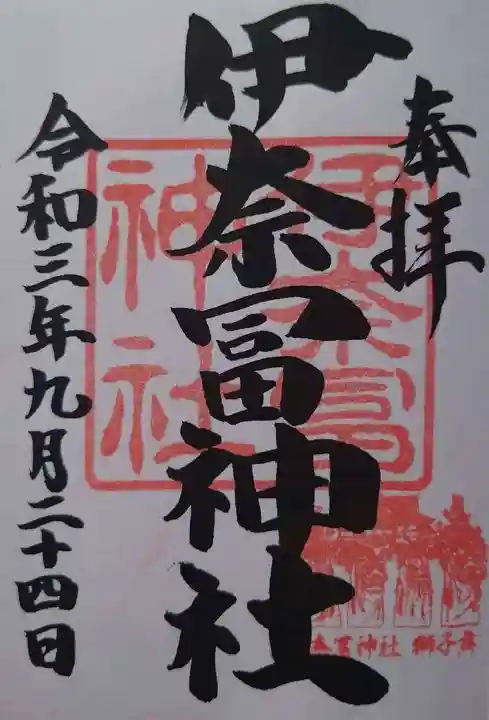 奉拝
伊奈冨神社
伊奈冨神社
令和三年九月二十四日
神社 獅子舞